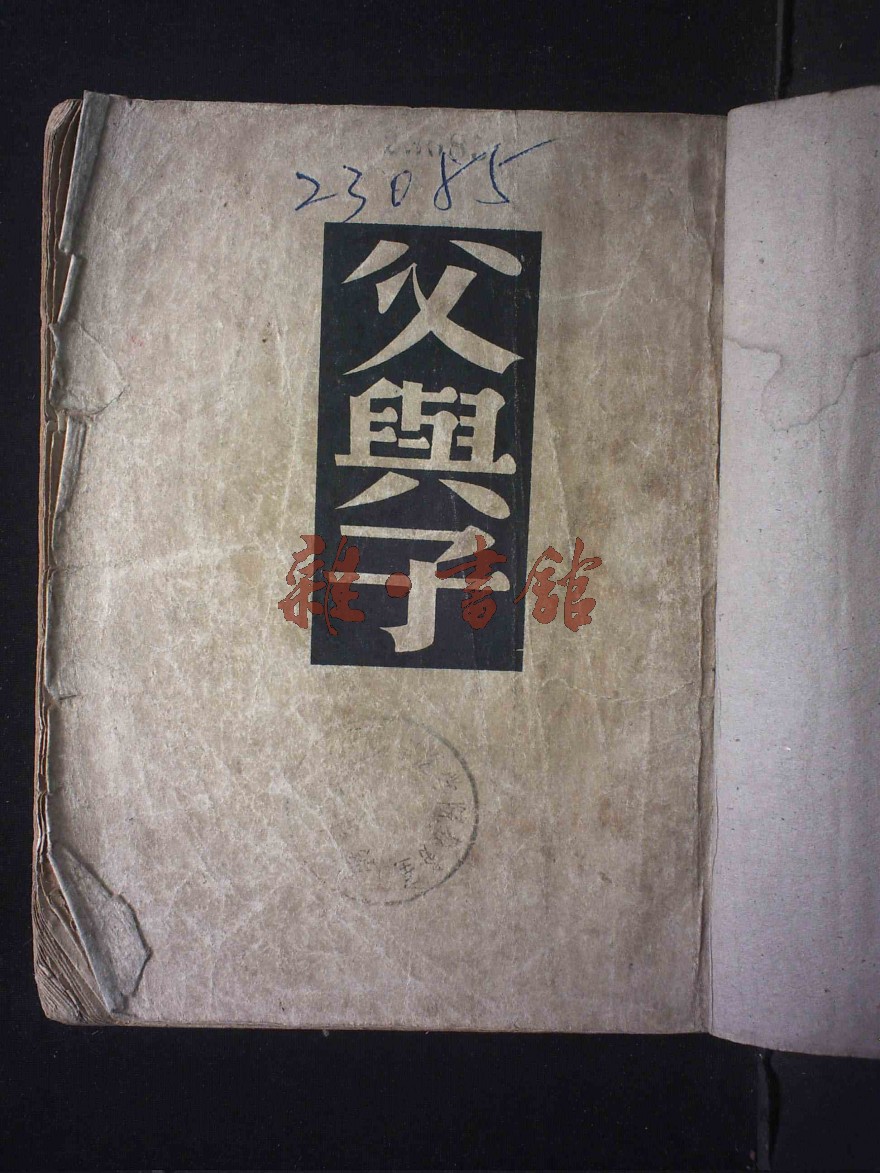 23085
父與子
雜·書館